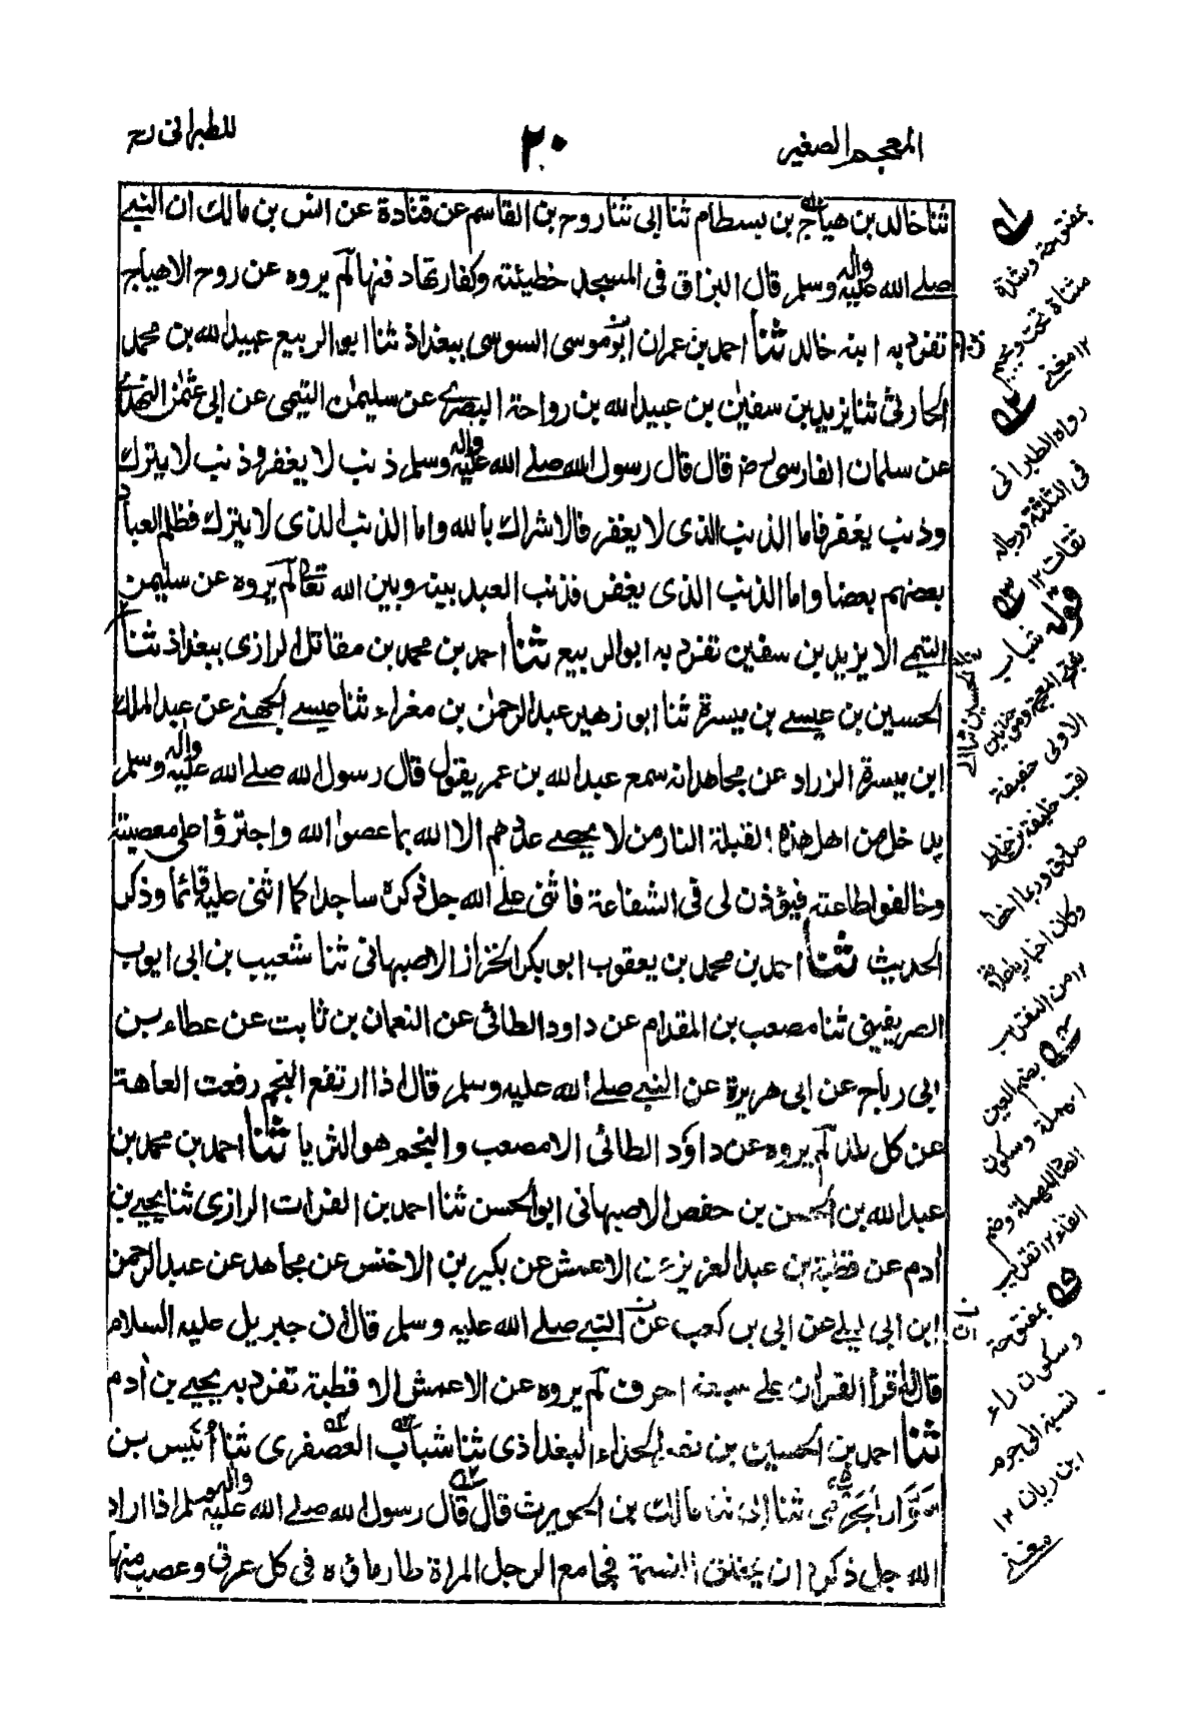 المعجم الصغير
٢٠
للطبرانی رح
ثنا خالد بن هياج بن بسطام ثنا ابی ثنا روح بن القاسم عن قتادة عن انس بن مالك ان النبي
صلے الله عليه واله وسلم قال البزاق فی المسجد خطيئته وكفارتها دفنها لم يروه عن روح الا هياج
تفرد به ابنه خالد ثنا احمد بن عمران ابو موسى السوسی ببغداذ ثنا ابو الربيع عبيد الله بن محمد
الحارثی ثنا يزيد بن سفين بن عبيد الله بن رواحة البصرے عن سليمن التيمی عن ابی عثمن النهدے
عن سلمان الفارسی رض قال قال رسول الله صلے الله عليه واله وسلم ذنب لا يغفر وذنب لا يترك
وذنب يغفر فاما الذنب الذی لا يغفر فالاشراك بالله واما الذنب الذی لا يترك فظلم العباد
بعضهم بعضا واما الذنب الذی يغفر فذنب العبد بينه وبين الله تعالى لم يروه عن سليمن
التيمے الا يزيد بن سفين تفرد به ابو الربيع ثنا احمد بن محمد بن مقاتل الرازی ببغداذ ثنا
الحسين بن عيسے بن ميسرة ثنا ابو زهير عبد الرحمن بن مغراء ثنا عيسے الجهنے عن عبد الملك
ابن ميسرة الزراد عن مجاهد انه سمع عبد الله بن عمر يقول قال رسول الله صلے الله عليه واله وسلم
يدخل من اهل هذه القبلة النار من لا يحصے عددهم الا الله بما عصوا الله واجترؤا على معصيته
وخالفوا طاعته فيؤذن لی فی الشفاعة فاثنی علے الله جل ذكره ساجدا كما اثنی عليه قائما وذكر
الحديث ثنا احمد بن محمد بن يعقوب ابو بكر الخزاز الاصبهانی ثنا شعيب بن ابی ايوب
الصريفينی ثنا مصعب بن المقدام عن داود الطائی عن النعمان بن ثابت عن عطاء بن
ابی رباح عن ابی هريرة عن النبے صلے الله عليه وسلم قال اذا ارتفع النجم رفعت العاهة
عن كل بلد لم يروه عن داود الطائی الا مصعب والنجم هو الثريا ثنا احمد بن محمد بن
عبد الله بن الحسن بن حفص الاصبهانی ابو الحسن ثنا احمد بن الفرات الرازی ثنا يحيے بن
ادم عن قطبة بن عبد العزيز عن الاعمش عن بكير بن الاخنس عن مجاهد عن عبد الرحمن
ابن ابی ليلے عن ابی بن كعب عن النبے صلے الله عليه وسلم قال ان جبريل عليه السلام
قال له اقرأ القران علے سبعة احرف لم يروه عن الاعمش الا قطبة تفرد به يحيے بن ادم
ثنا احمد بن الحسين بن نصر الحذاء البغداذی ثنا شباب العصفری ثنا أنيس بن
سوار الجرمی ثنا ابی ثنا مالك بن الحويرث قال قال رسول الله صلے الله عليه واله وسلم اذا اراد
الله جل ذكره ان يخلق النسمة فجامع الرجل المراة طار ماؤه فی كل عرق وعصب منها
بمفتوحة وشدة
مثناة تحت وبجيم
١٢ مغنے
رواه الطبرانی
فی الثلثة ورجاله
ثقات ١٢
قوله شباب
بفتح المعجمة وموحدتين
الاولى خفيفة
لقب خليفة بن خياط
صدوق وربما اخطا
وكان اخباريا علامة
١٢ من التقريب
بضم العين
المهملة وسكون
الصاد المهملة وضم
الفاء ١٢ تقريب
بمفتوحة
وسكون راء
نسبة الى جرم
ابن ريان ١٢
مغنے